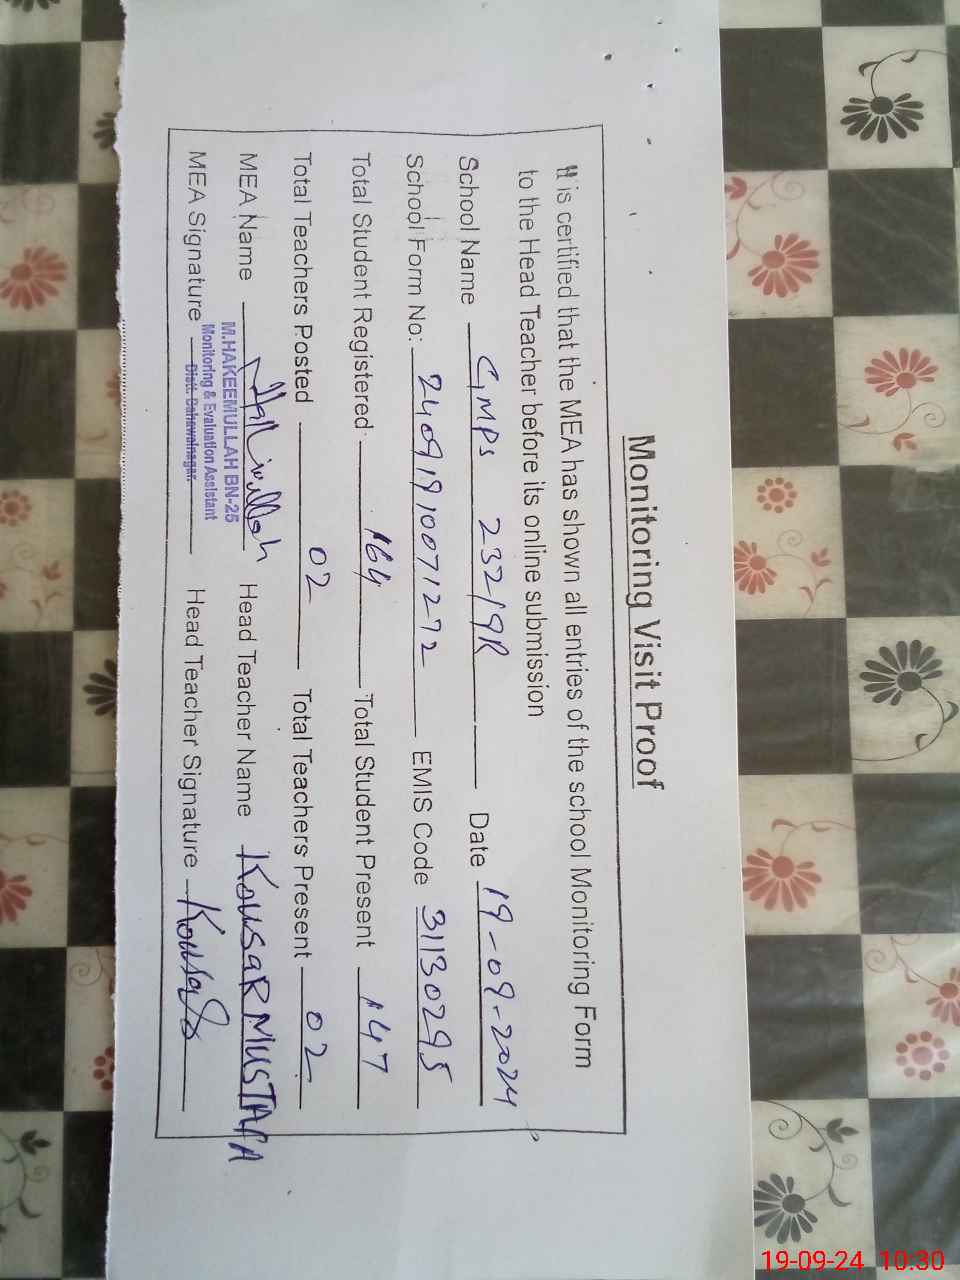 Monitoring Visit Proof
It is certified that the MEA has shown all entries of the school Monitoring Form
to the Head Teacher before its online submission
School Name GMPS 232/9R Date 19-09-2024
School Form No: 24091910071272 EMIS Code 31130295
Total Student Registered 164 Total Student Present 147
Total Teachers Posted 02 Total Teachers Present 02
MEA Name Head Teacher Name KOUSAR MUSTAFA
M.HAKEEMULLAH BN-25
Monitoring & Evaluation Assistant
Distt. Bahawalnagar.
MEA Signature Head Teacher Signature Kousar
19-09-24 10:30